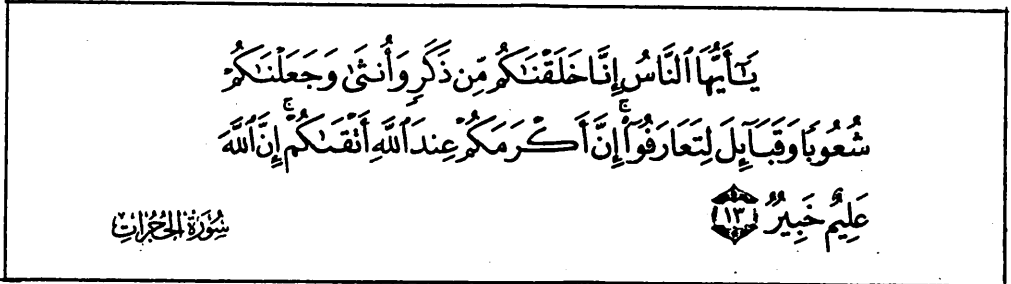 يَـٰٓأَيُّهَا ٱلنَّاسُ إِنَّا خَلَقْنَـٰكُم مِّن ذَكَرٍ وَأُنثَىٰ وَجَعَلْنَـٰكُمْ
شُعُوبًا وَقَبَآئِلَ لِتَعَارَفُوٓا۟ ۚ إِنَّ أَكْرَمَكُمْ عِندَ ٱللَّهِ أَتْقَىٰكُمْ ۚ إِنَّ ٱللَّهَ
عَلِيمٌ خَبِيرٌ ١٣
سُورَةُ الحُجُرَاتِ